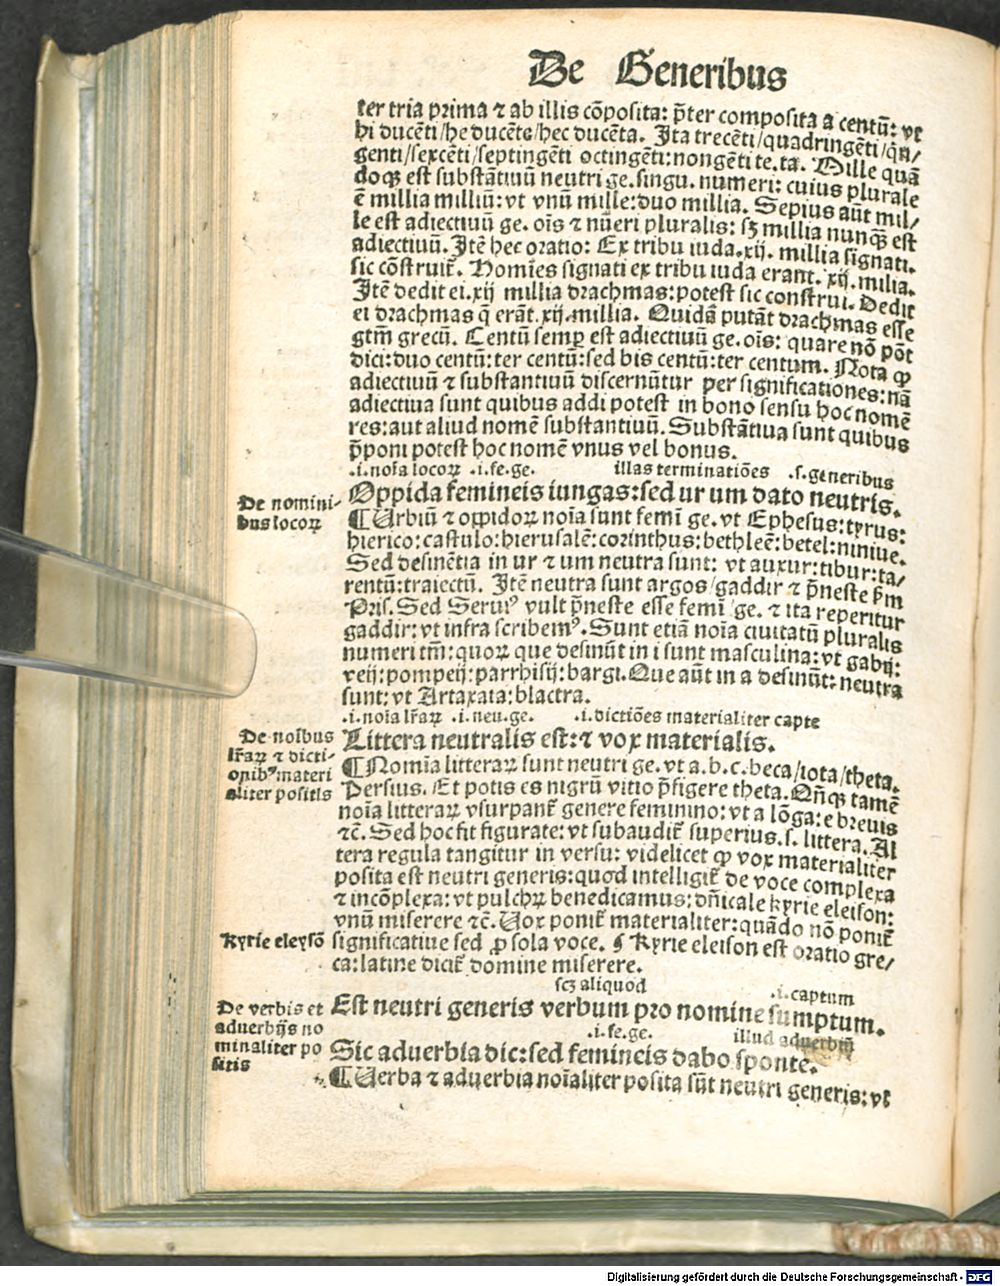 De Generibus
ter tria prima ⁊ ab illis cōposita: p̄ter composita a centū: vt
hi ducēti/he ducēte/hec ducēta. Ita trecēti/quadringēti/qn̄/
genti/sexcēti/septingēti octingēti: nongēti te.ta. Mille quā
doqꝫ est substātiuū neutri ge. singu. numeri: cuius plurale
ē millia milliū: vt vnū mille: duo millia. Sepius aūt mil/
le est adiectiuū ge. oīs ⁊ nūeri pluralis: sꝫ millia nunqꝫ̄ est
adiectiuū. Itē hec oratio: Ex tribu iuda .xij. millia signati.
sic cōstruit᷑. Homīes signati ex tribu iuda erant .xij. milia.
Itē dedit ei .xij millia drachmas: potest sic construi. Dedit
ei drachmas q̄ erāt .xij. millia. Quidā putāt drachmas esse
gtm̄ grecū. Centū semꝑ est adiectiuū ge. oīs: quare nō pōt
dici: duo centū: ter centū: sed bis centū: ter centum. Nota ꝙ
adiectiuū ⁊ substantiuū discernūtur per significationes: nā
adiectiua sunt quibus addi potest in bono sensu hoc nomē
res: aut aliud nomē substantiuū. Substātiua sunt quibus
p̄poni potest hoc nomē vnus vel bonus.
.i. noīa locoꝝ .i. fe. ge. illas terminatiōes .s. generibus
De nomini-
bus locoꝝ
Oppida femineis iungas: sed ur um dato neutris.
¶ Urbiū ⁊ oppidoꝝ noīa sunt femī ge. vt Ephesus: tyrus:
hierico: castulo: hierusalē: corinthus: bethleē: betel: niniue.
Sed desinētia in ur ⁊ um neutra sunt: vt auxur: tibur: ta/
rentū: traiectū. Itē neutra sunt argos/gaddir ⁊ p̄neste ẜm
Pris. Sed Seruiꝰ vult p̄neste esse femī ge. ⁊ ita reperitur
gaddir: vt infra scribemꝰ. Sunt etiā noīa ciuitatū pluralis
numeri tm̄: quoꝝ que desinūt in i sunt masculina: vt gabij:
veij: pompeij: parrhisij: bargi. Que aūt in a desinūt: neutra
sunt: vt Artaxata: blactra.
.i. noīa lr̄aꝝ .i. neu. ge. .i. dictiōes materialiter capte
De noībus
lr̄aꝝ ⁊ dicti-
onibꝰ materi
aliter positis
Littera neutralis est: ⁊ vox materialis.
¶ Nomīa litteraꝝ sunt neutri ge. vt a. b. c. beca/iota/theta.
Persius. Et potis es nigrū vitio p̄figere theta. Qn̄qꝫ tamē
noīa litteraꝝ vsurpant᷑ genere feminino: vt a lōga: e breuis
⁊c̄. Sed hoc fit figurate: vt subaudit᷑ superius .s. littera. Al
tera regula tangitur in versu: videlicet ꝙ vox materialiter
posita est neutri generis: quod intelligit᷑ de voce complexa
⁊ incōplexa: vt pulchꝝ benedicamus: dn̄icale kyrie eleison:
vnū miserere ⁊c̄. Uox ponit᷑ materialiter: quādo nō ponit᷑
Kyrie eleysō
significatiue sed ꝓ sola voce. ¶ Kyrie eleison est oratio gre/
ca: latine dicit᷑ domine miserere.
scꝫ aliquod .i. captum
De verbis et
aduerbijs no
minaliter po
sitis
Est neutri generis verbum pro nomine sumptum.
.i. fe. ge. illud aduerbiū
Sic aduerbia dic: sed femineis dabo sponte.
¶ Uerba ⁊ aduerbia noīaliter posita sūt neutri generis: vt
Digitalisierung gefördert durch die Deutsche Forschungsgemeinschaft - DFG